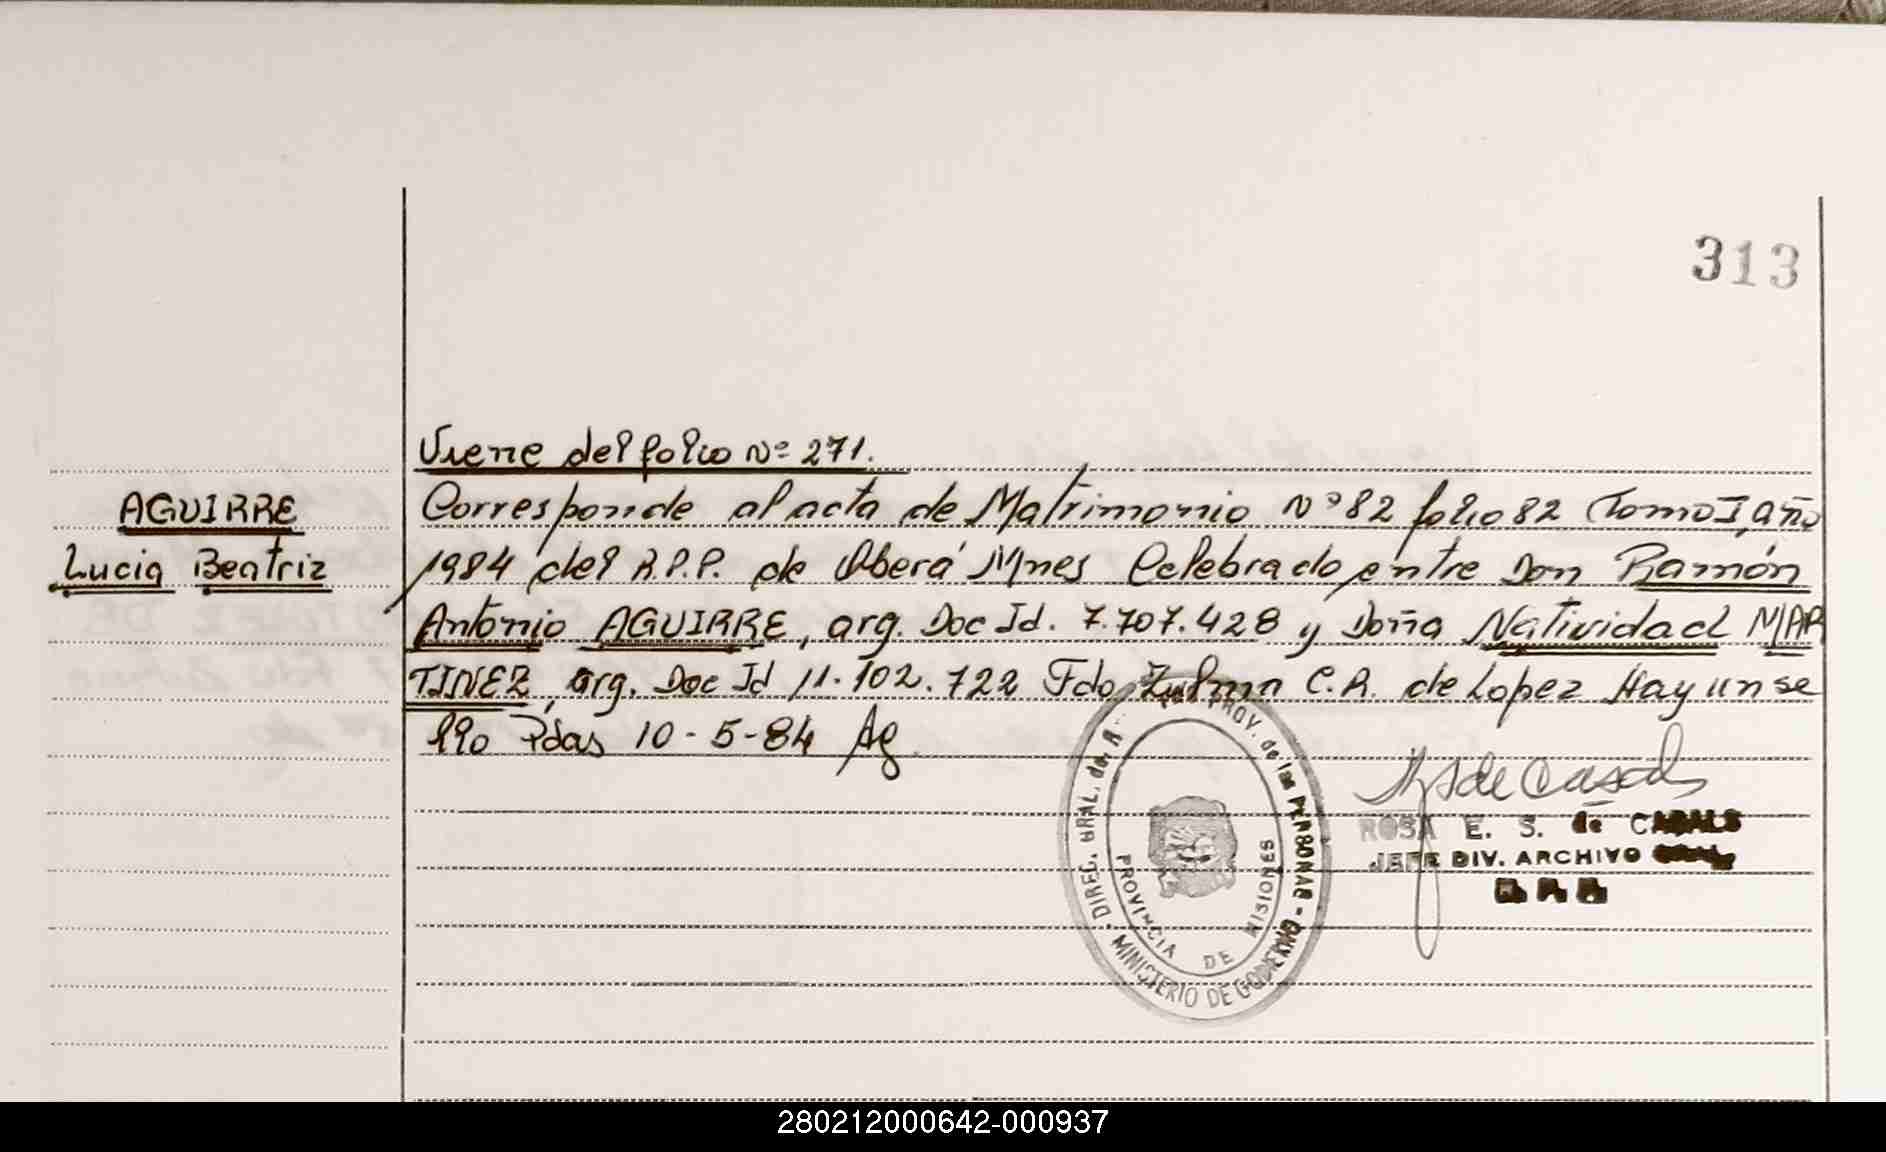 313
Viene del folio Nº 271.
AGUIRRE
Lucia Beatriz
Corresponde al acta de Matrimonio Nº 82 folio 82 Tomo I, año
1984 del R.P.P. de Oberá Mnes Celebrado entre Don Ramón
Antonio AGUIRRE, arg. Doc Id. 7.707.428 y Doña Natividad MAR
TINEZ, arg. Doc Id 11.102.722 Fdo Zulma C.R. de Lopez Hay un se
llo Pdas 10-5-84 Ag
ROSA E. S. de CASALS
JEFE DIV. ARCHIVO
DIREC. GRAL. de PROV. de las PERSONAS - MINISTERIO DE GOBIERNO
PROVINCIA DE MISIONES
280212000642-000937